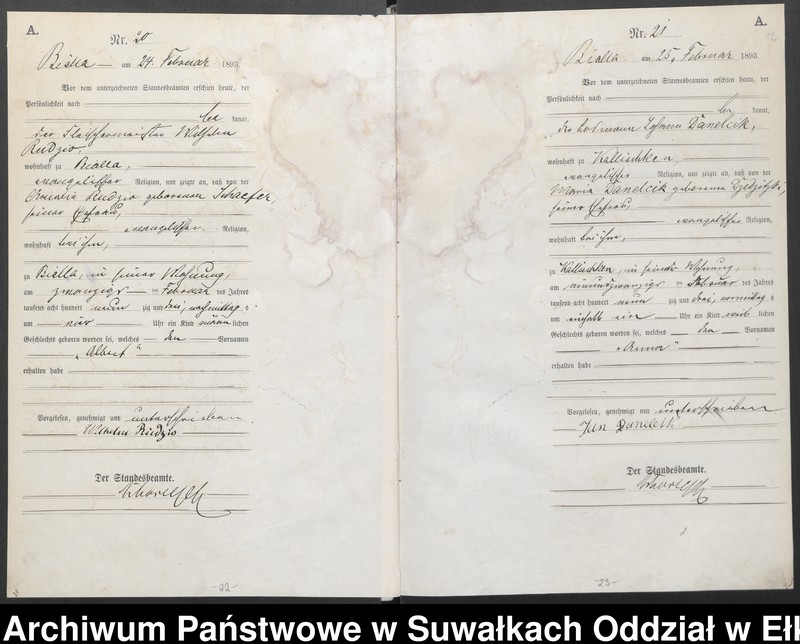 A.
Nr. 20
Bialla — am 24. Februar 1893
Vor dem unterzeichneten Standesbeamten erschien heute, der
Persönlichkeit nach
kannt,
der Fleischermeister Wilhelm
Rudzio,
wohnhaft zu Bialla,
evangelischer Religion, und zeigte an, daß von der
Rudzio geborenen Schaefer,
seiner Ehefrau,
evangelischer Religion,
wohnhaft bei ihm,
zu Bialla, in seiner Wohnung,
am zwanzigs ten Februar des Jahres
tausend acht hundert neun zig und drei, nachmittag s
um vier Uhr ein Kind männ lichen
Geschlechts geboren worden sei, welches den Vornamen
„Albert“
erhalten habe
Vorgelesen, genehmigt und unterschrieben
Wilhelm Rudzio
Der Standesbeamte.
-22-
A.
Nr. 21
Bialla am 25. Februar 1893
Vor dem unterzeichneten Standesbeamten erschien heute, der
Persönlichkeit nach
kannt,
der Losmann Johann Danelcik,
wohnhaft zu Kallischken,
evangelischer Religion, und zeigte an, daß von der
Maria Danelcik geborenen
seiner Ehefrau,
evangelischer Religion,
wohnhaft bei ihm,
zu Kallischken, in seiner Wohnung,
am einundzwanzigs ten Februar des Jahres
tausend acht hundert neun zig und drei, vormittag s
um einhalb ein Uhr ein Kind weib lichen
Geschlechts geboren worden sei, welches den Vornamen
„Anna“
erhalten habe
Vorgelesen, genehmigt und unterschrieben
Danelcik
Der Standesbeamte.
-23-
Archiwum Państwowe w Suwałkach Oddział w Eł